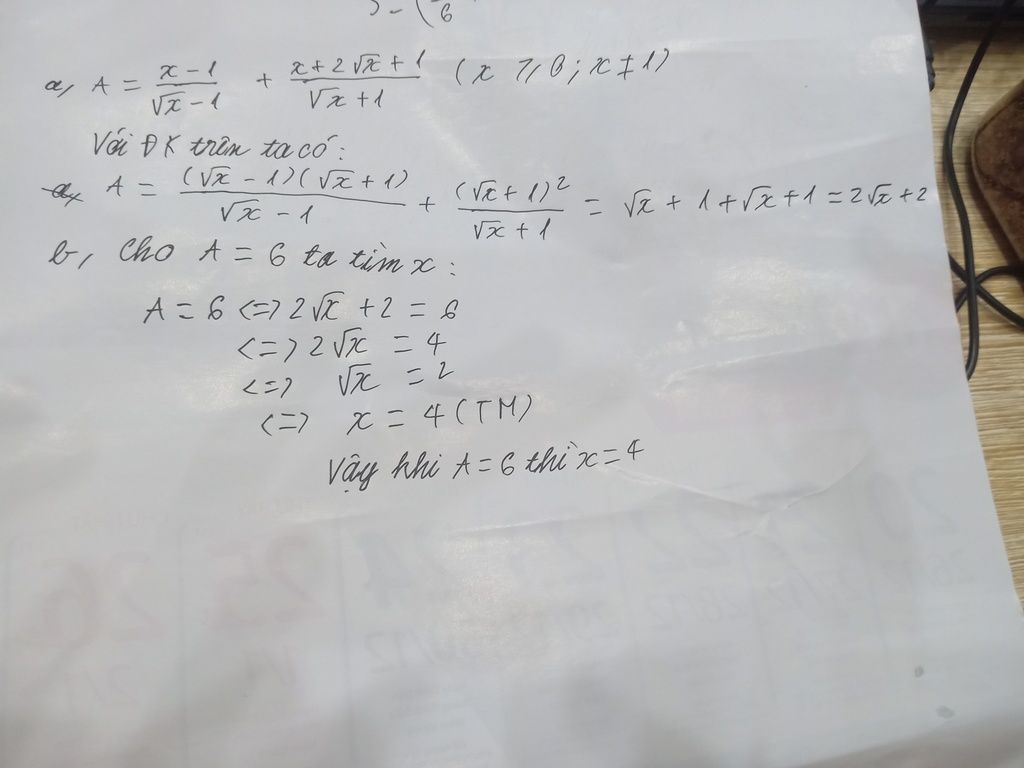 6
a, A = \frac{x-1}{\sqrt{x}-1} + \frac{x+2\sqrt{x}+1}{\sqrt{x}+1} (x ≥ 0; x ≠ 1)
Với ĐK trên ta có:
A = \frac{(\sqrt{x}-1)(\sqrt{x}+1)}{\sqrt{x}-1} + \frac{(\sqrt{x}+1)^2}{\sqrt{x}+1} = \sqrt{x}+1+\sqrt{x}+1=2\sqrt{x}+2
b, Cho A = 6 ta tìm x:
A = 6 <=> 2\sqrt{x} + 2 = 6
<=> 2\sqrt{x} = 4
<=> \sqrt{x} = 2
<=> x = 4 (TM)
Vậy khi A = 6 thì x = 4